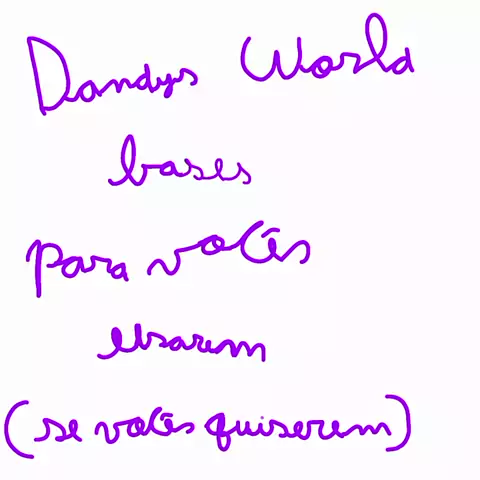 Dandys World
bases
para vocês
usarem
(se vocês quiserem)